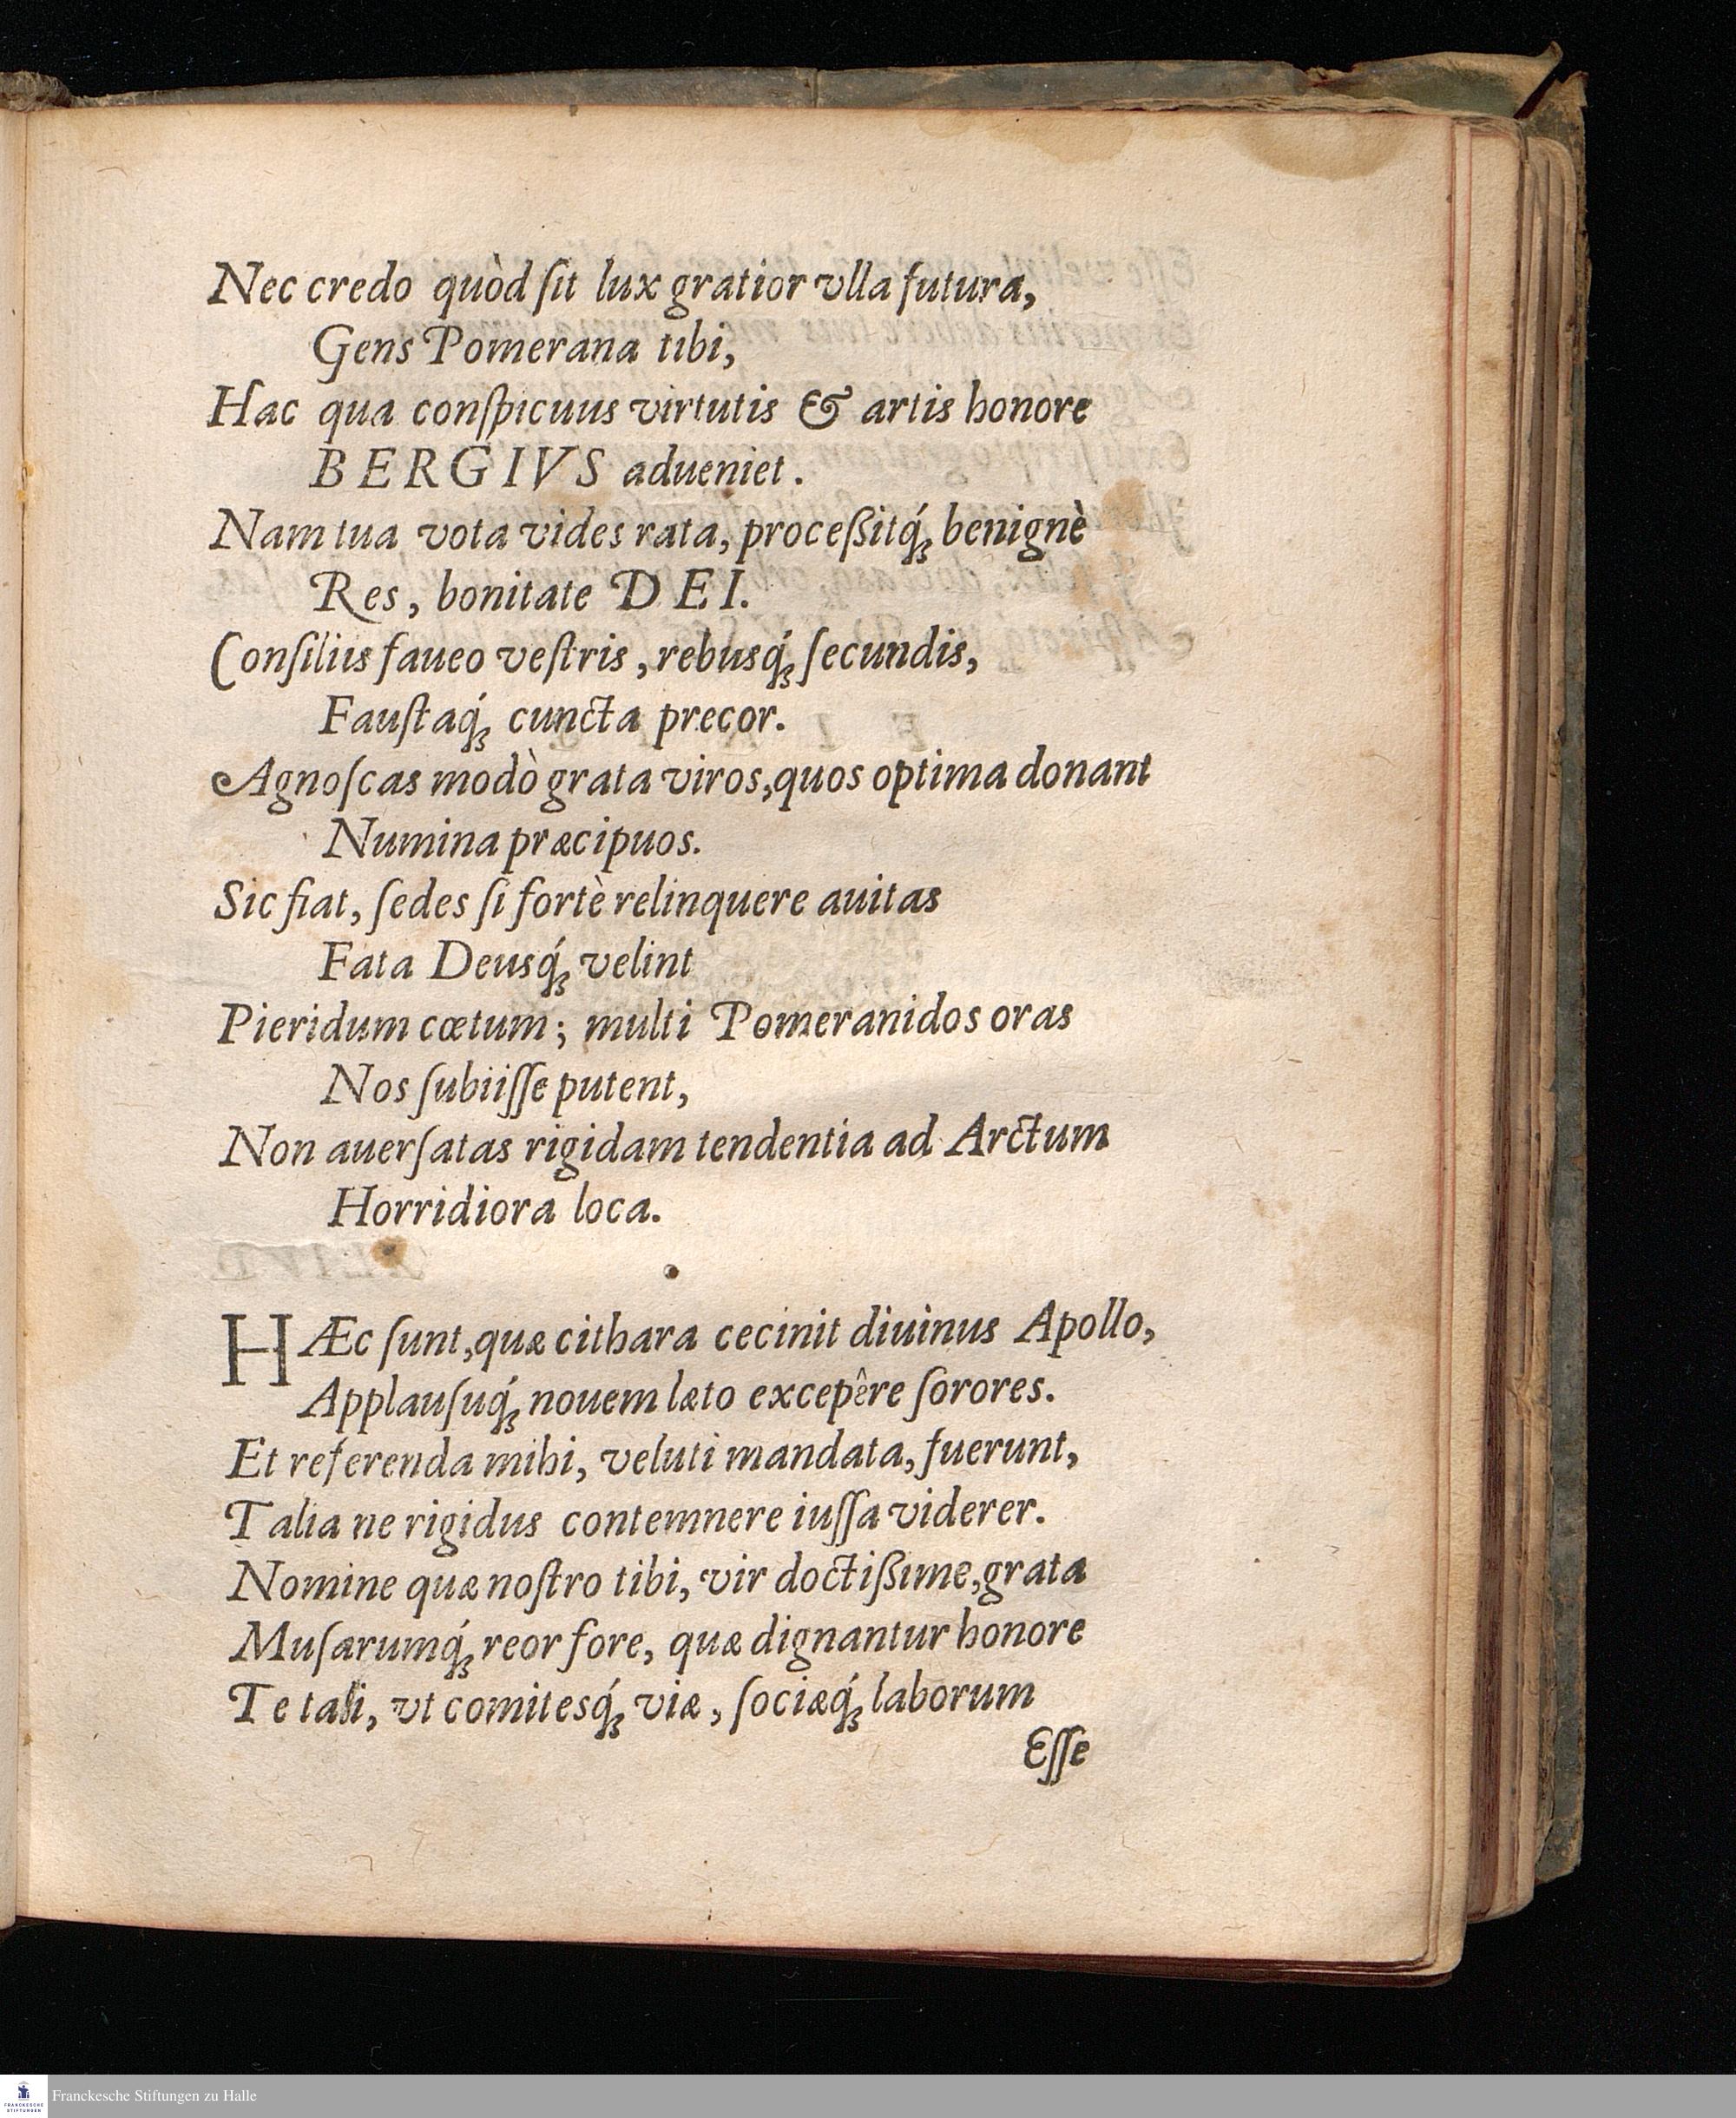 Nec credo quòd ſit lux gratior vlla futura,
Gens Pomerana tibi,
Hac qua conſpicuus virtutis & artis honore
BERGIVS adueniet.
Nam tua vota vides rata, proceßitq́ꝫ benignè
Res, bonitate DEI.
Conſiliis faueo veſtris, rebusq́ꝫ ſecundis,
Fauſtaq́ꝫ cuncta precor.
Agnoſcas modò grata viros, quos optima donant
Numina præcipuos.
Sic fiat, ſedes ſi fortè relinquere auitas
Fata Deusq́ꝫ velint
Pieridum cœtum; multi Pomeranidos oras
Nos ſubiiſſe putent,
Non auerſatas rigidam tendentia ad Arctum
Horridiora loca.
HÆc ſunt, quæ cithara cecinit diuinus Apollo,
Applauſuq́ꝫ nouem læto excepêre ſorores.
Et referenda mihi, veluti mandata, fuerunt,
Talia ne rigidus contemnere iuſſa viderer.
Nomine quæ noſtro tibi, vir doctißime, grata
Muſarumq́ꝫ reor fore, quæ dignantur honore
Te tali, vt comitesq́ꝫ viæ, ſociæq́ꝫ laborum
Eſſe
Franckesche Stiftungen zu Halle
FRANCKESCHE
STIFTUNGEN